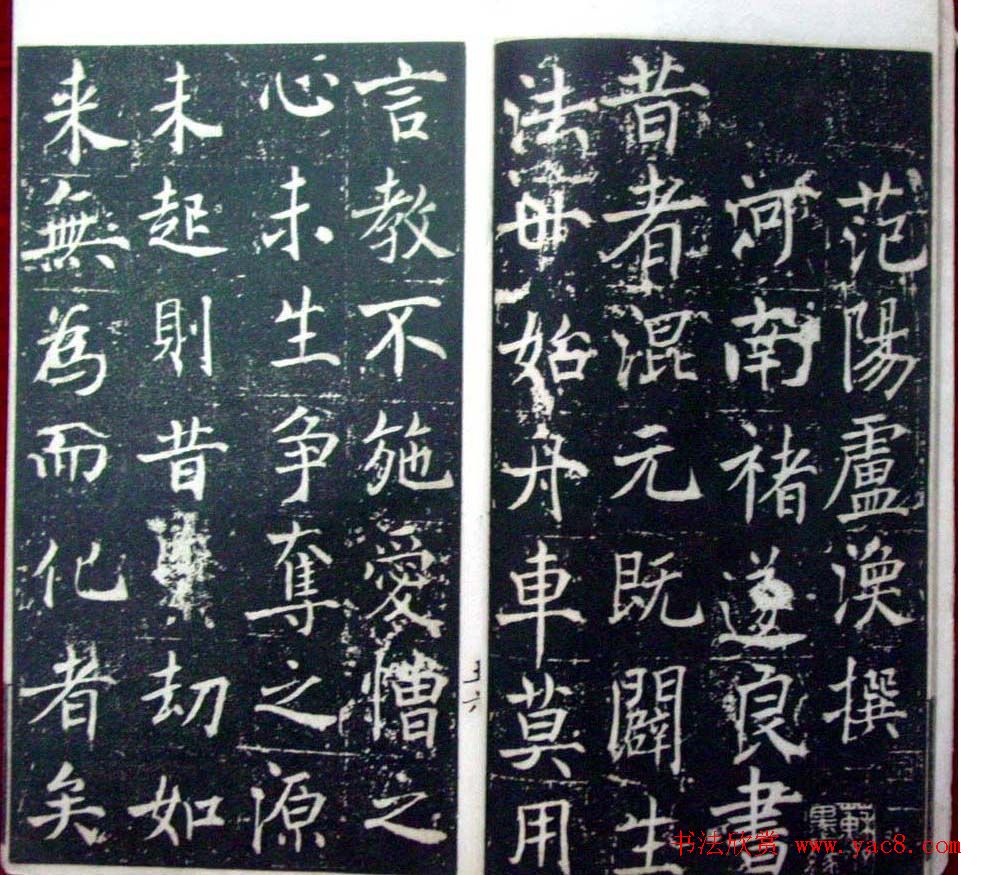 范陽盧渙撰
河南褚遂良書
昔者混元既闢生
法毋始舟車莫用
五六
言教不施愛憎之
心未生争奪之源
未起則昔劫如
来無為而化者矣
书法欣赏 www.yac8.com